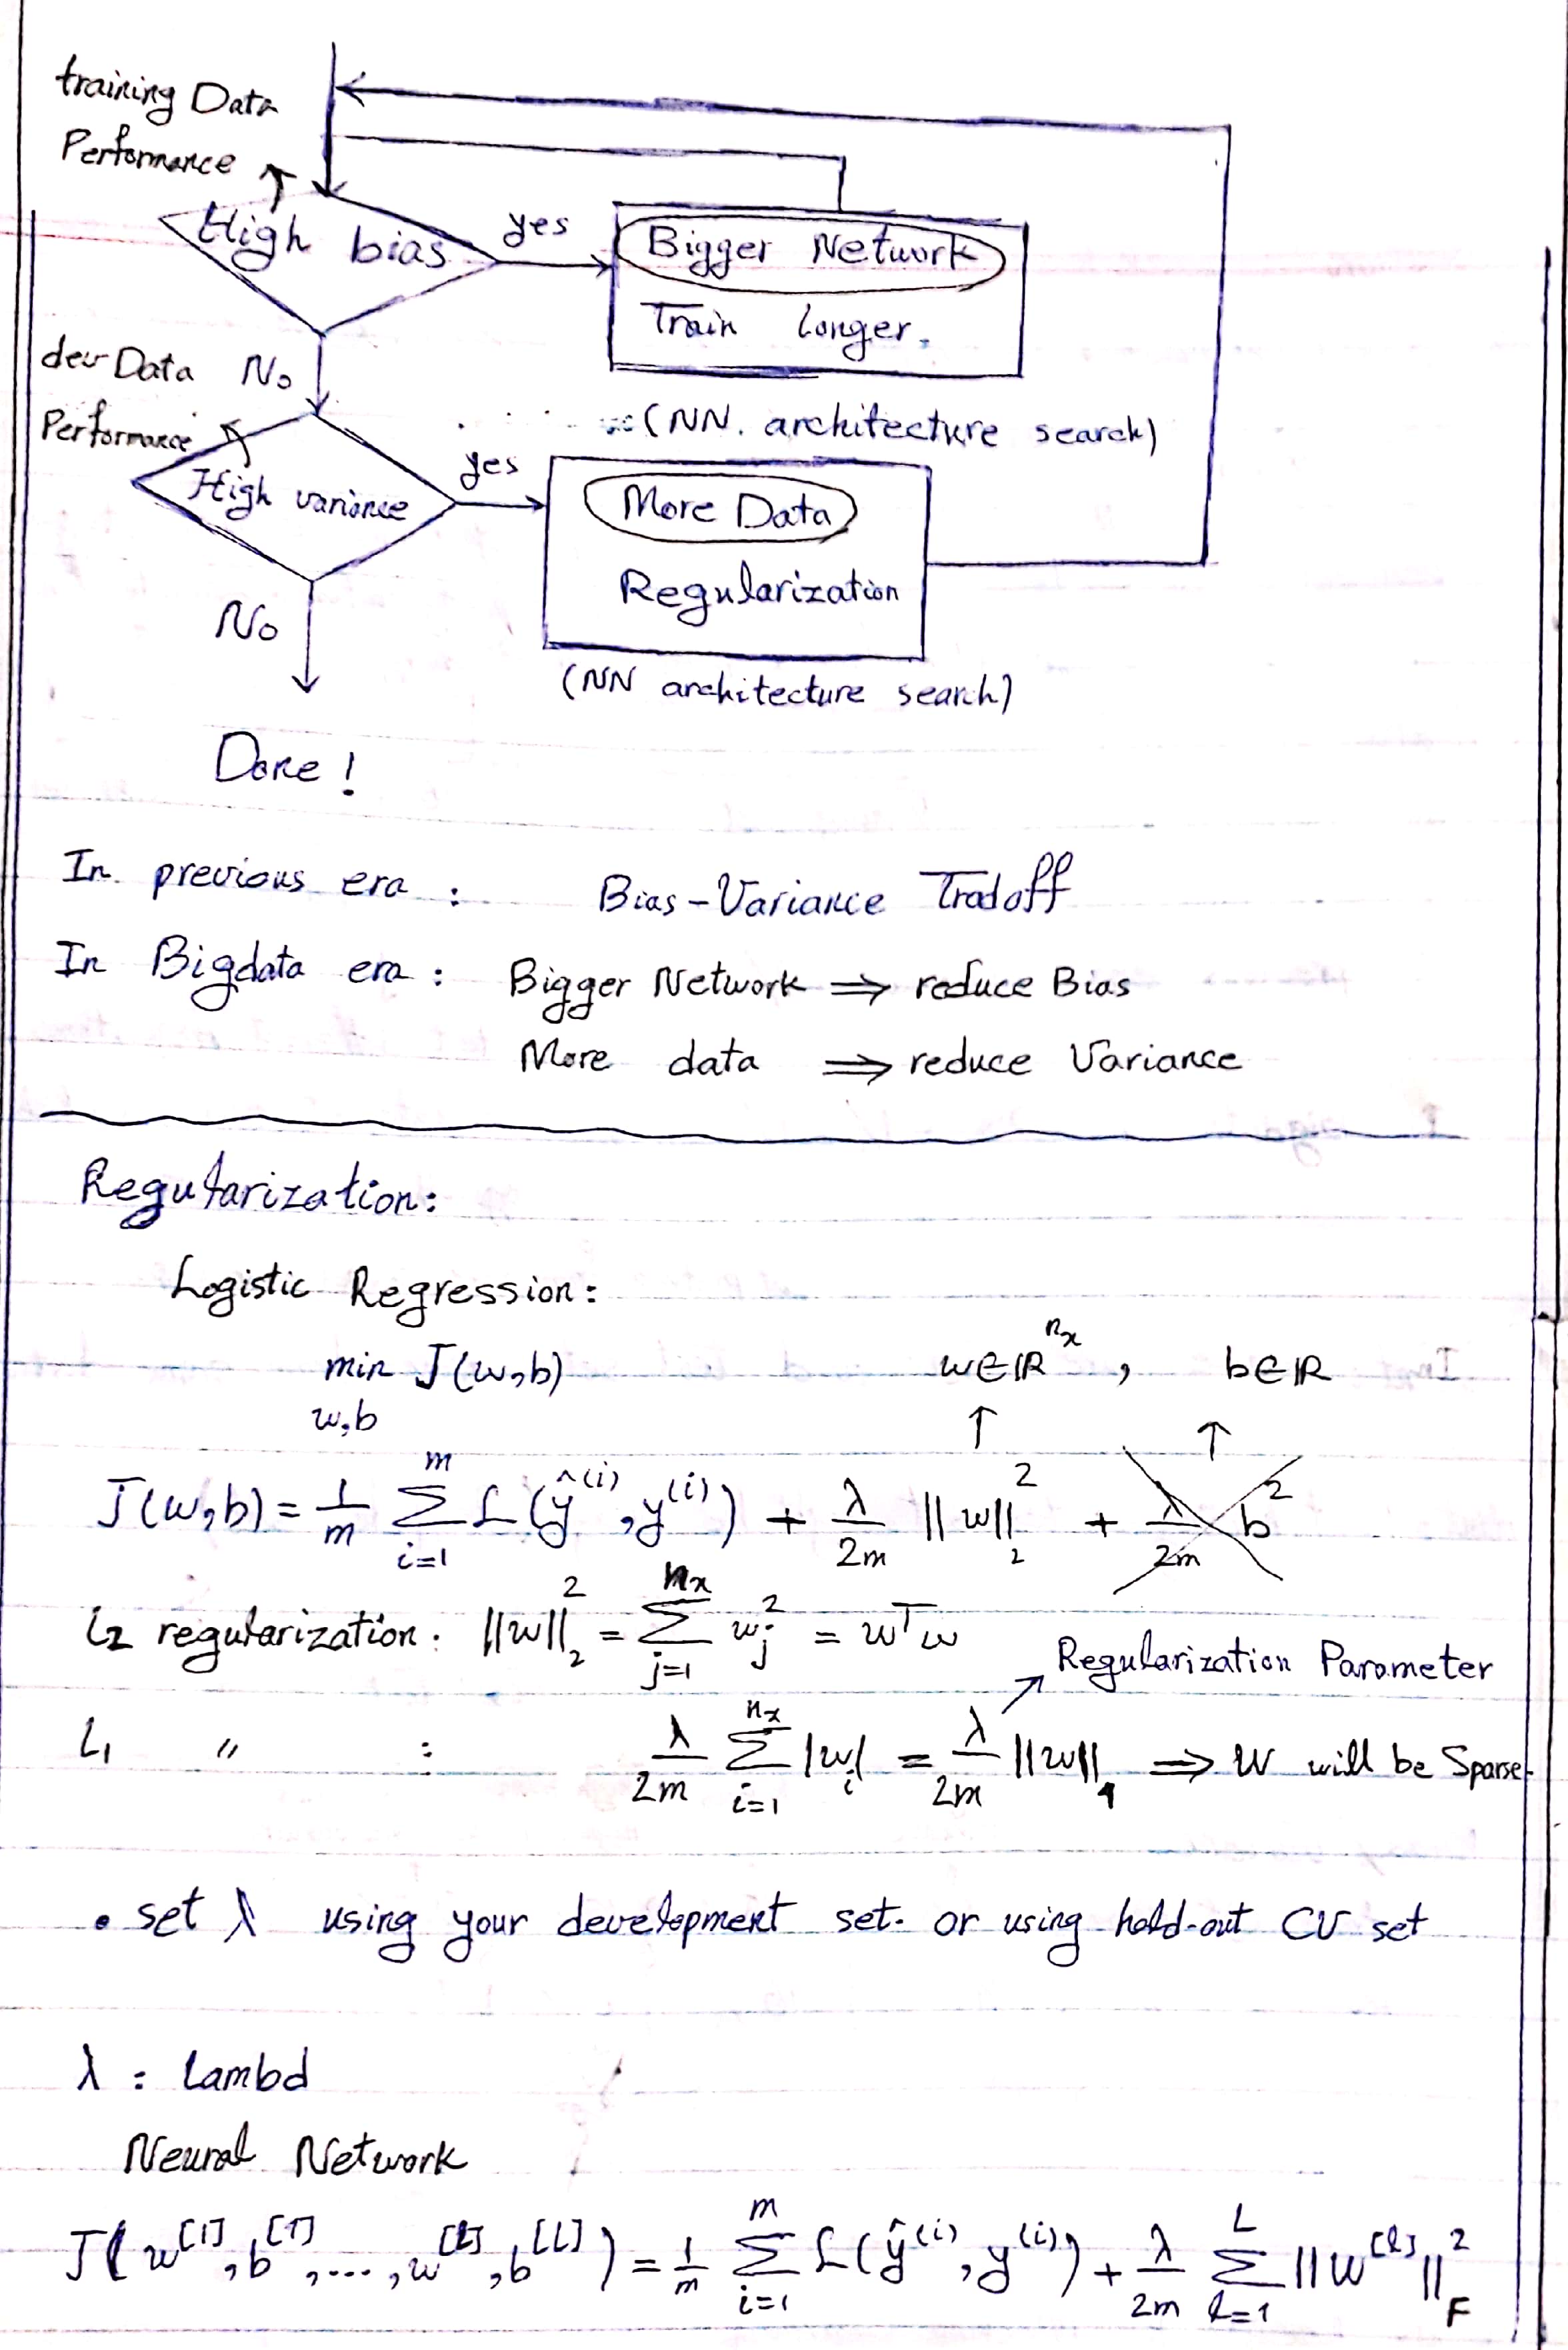 training Data
Performance
High bias
yes
Bigger Network
Train longer.
dev Data
No
Performance
(NN. architecture search)
High variance
yes
More Data
Regularization
No
(NN architecture search)
Done!
In previous era : Bias-Variance Tradoff
In Bigdata era : Bigger Network ⇒ reduce Bias
More data ⇒ reduce Variance
Regularization:
Logistic Regression:
min J(w,b) w∈ℝ^{n_x} , b∈ℝ
w,b
J(w,b) = 1/m Σ_{i=1}^{m} ℒ(ŷ^{(i)}, y^{(i)}) + λ/2m ||w||_2^2 + λ/2m b^2
L2 regularization: ||w||_2^2 = Σ_{j=1}^{n_x} w_j^2 = w^T w
Regularization Parameter
L1 〃 : λ/2m Σ_{i=1}^{n_x} |w_i| = λ/2m ||w||_1 ⇒ W will be Sparse
• set λ using your development set. or using hold-out CV set
λ : lambd
Neural Network
J(w^{[1]}, b^{[1]}, ..., w^{[L]}, b^{[L]}) = 1/m Σ_{i=1}^{m} ℒ(ŷ^{(i)}, y^{(i)}) + λ/2m Σ_{l=1}^{L} ||w^{[l]}||_F^2